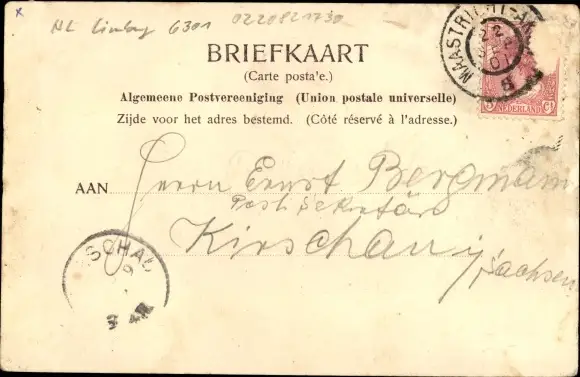 NL Limburg 6301 0220821730
BRIEFKAART
(Carte posta'e.)
Algemeene Postvereeniging (Union postale universelle)
Zijde voor het adres bestemd. (Côté réservé à l'adresse.)
MAASTRICHT-A
22
01
5 NEDERLAND Ct
AAN Herrn Ernst Bergmann
Post Sekretär
Kirschau i/Sachsen
SCHAU
9